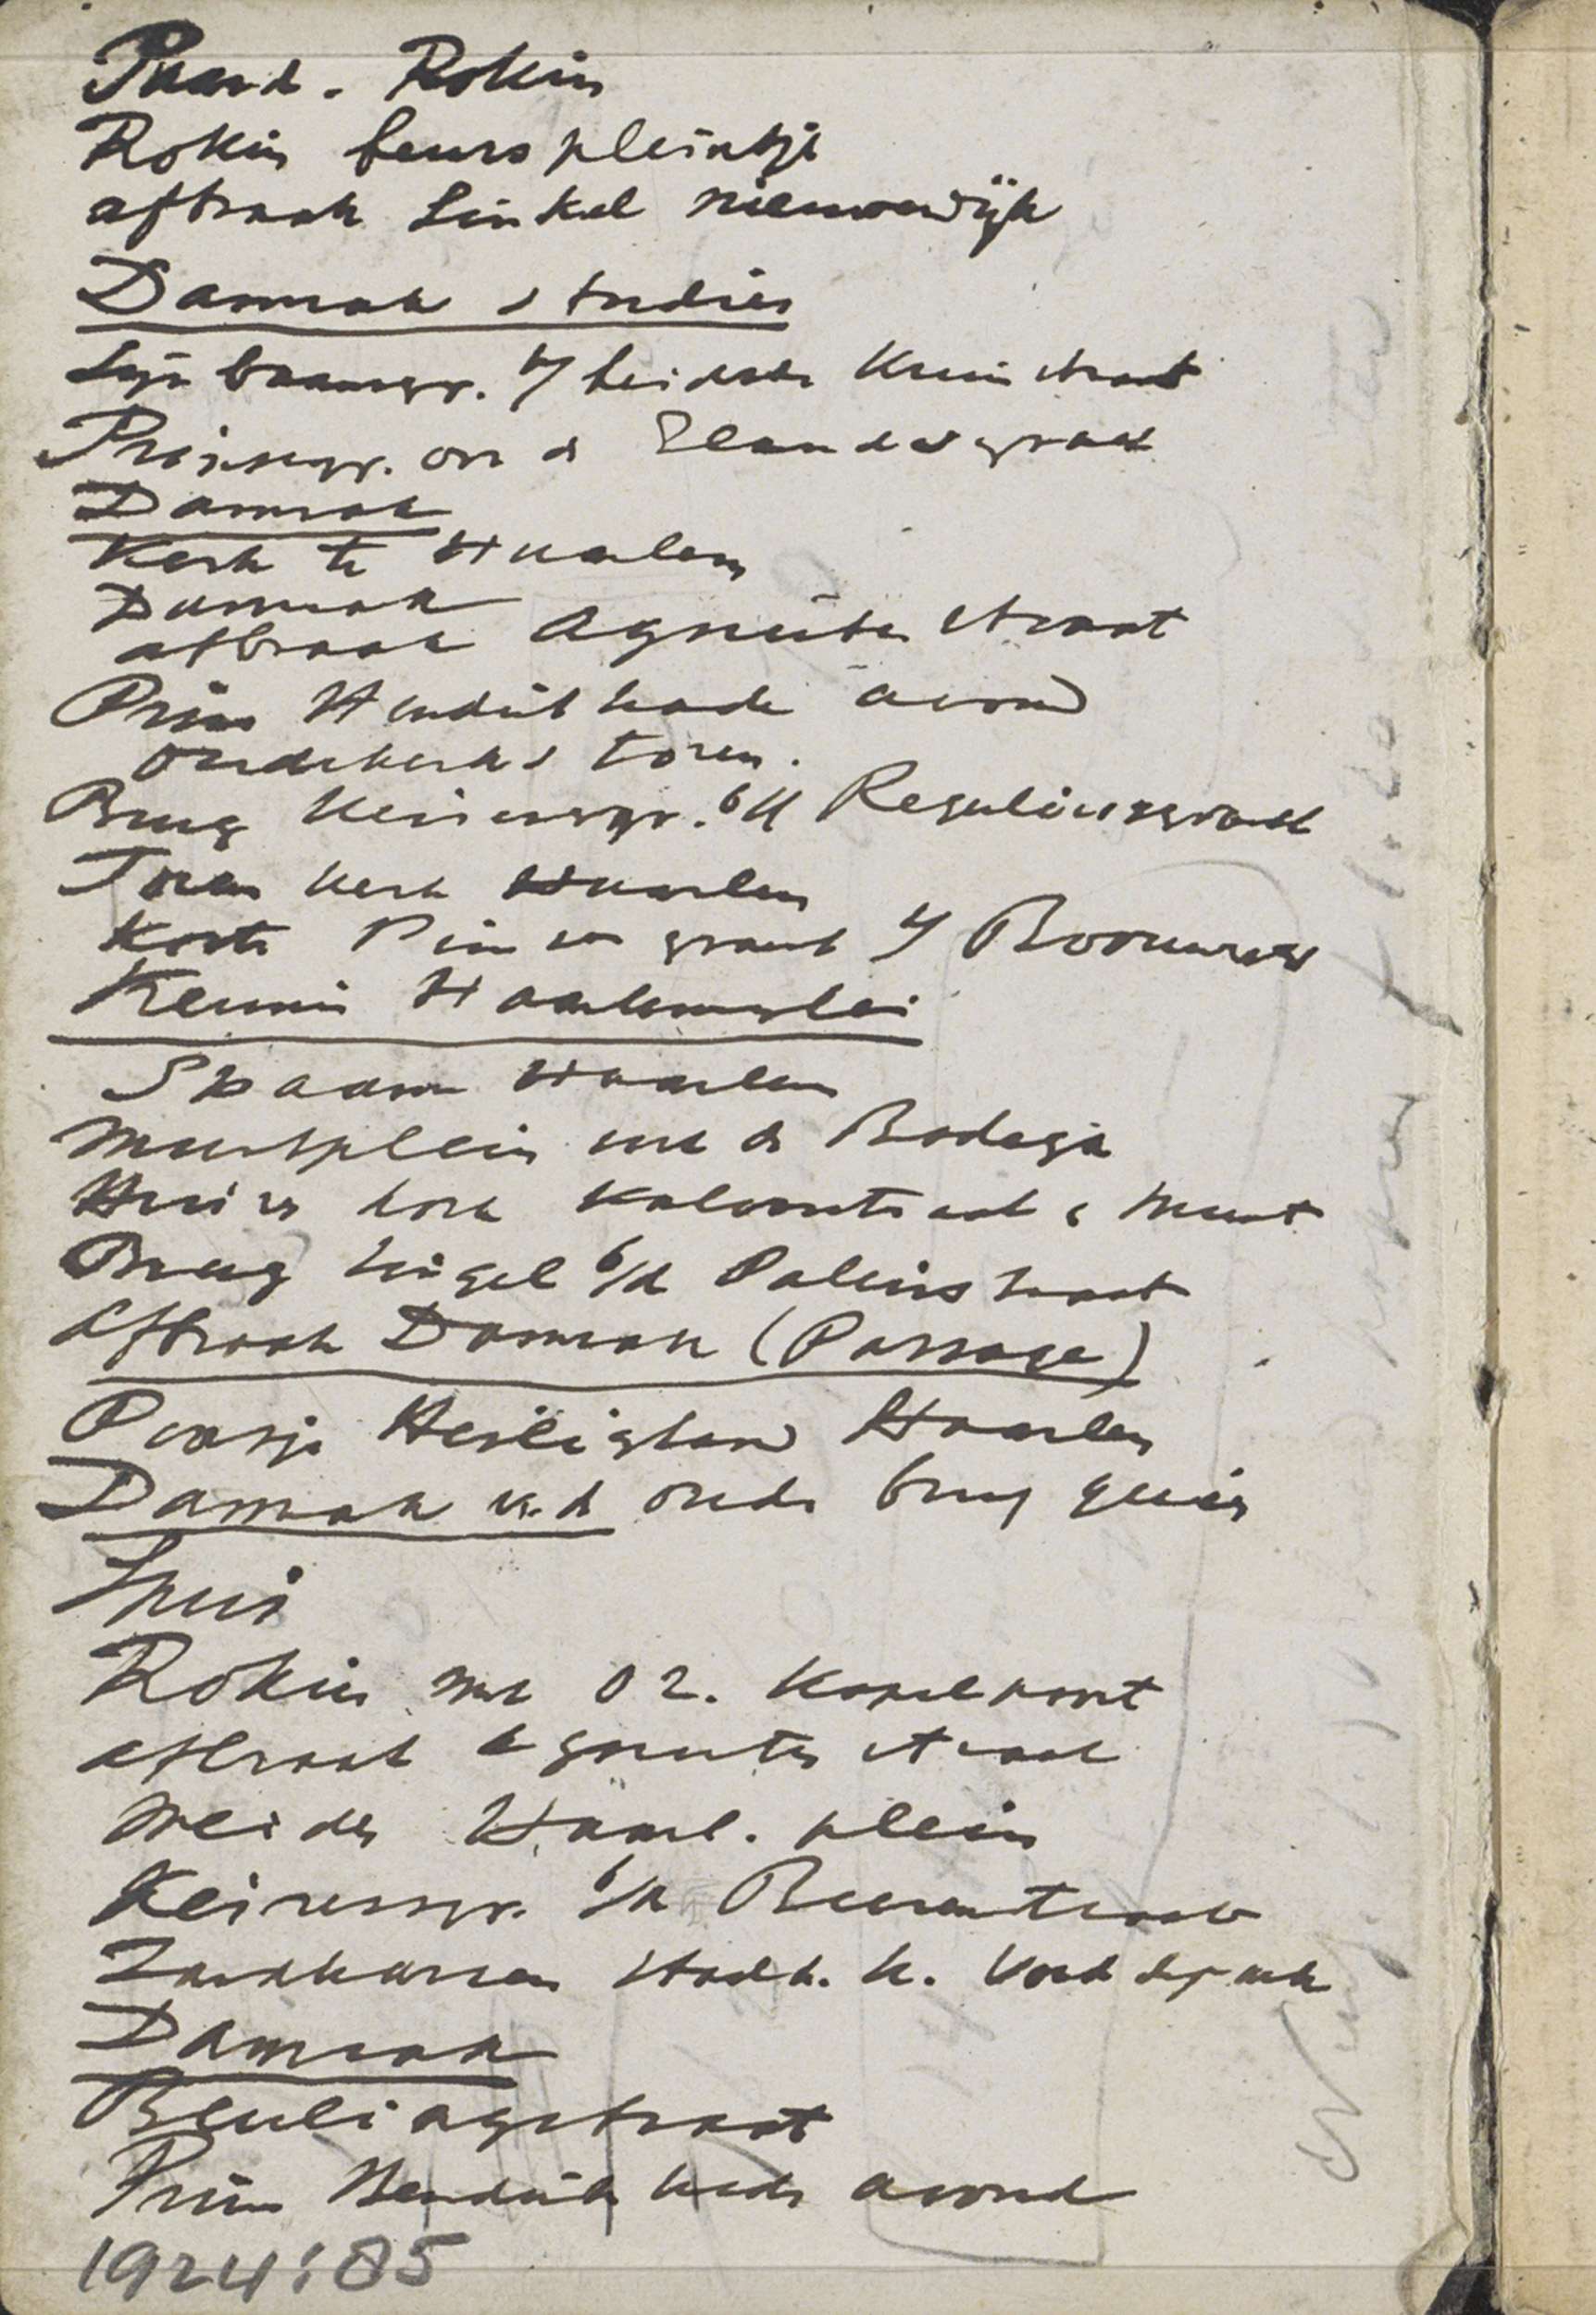 Paard. Rokin
Rokin beurspleintje
afbraak Sinkel nieuwendijk
Damrak studies
Lijnbaansgr. b/ Leidsche Kruisstraat
Prinsengr. over de Elandsgracht
Damrak
Kerk te Haarlem
Damrak
afbraak Agnieten straat
Prins Hendrik kade avond
Oudekerks toren.
Brug Keizersgr. b/d Reguliersgracht
Toren kerk Haarlem
Korte Prinsengracht b/ Brouwers
Kermis Haarlemmerplei
Spaarne Haarlem
Muntplein met de Bodega
Huizen hoek Kalverstraat & Munt
Brug Singel b/d Paleisstraat
Afbraak Damrak (Passage)
Poortje Heiligland Haarlem
Damrak v.d oude brug gezien
Spui
Rokin met O Z. Kapelpoort
afbraak Agnieten straat
meiden Haarl. plein
Keizersgr. b/d Beerenstraat
Zandkarren Stadh. k. Vondelpark
Damrak
Beulingstraat
Prins Hendrik kade avond
1924:85